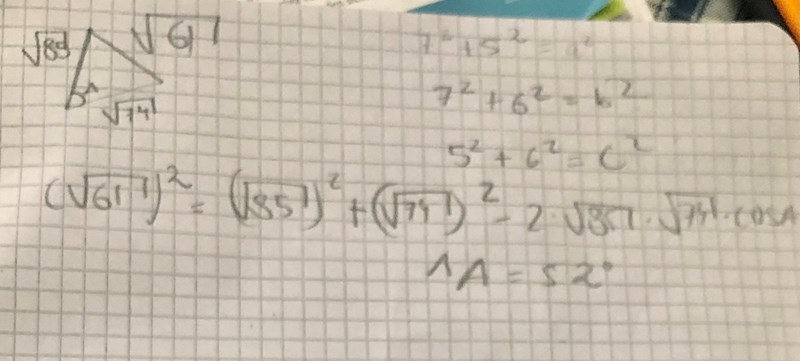 √85
√61
√74
7² + 5² = a²
7² + 6² = b²
5² + 6² = c²
(√61)² = (√85)² + (√74)² - 2 · √85 · √74 · cosA
^A = 52°